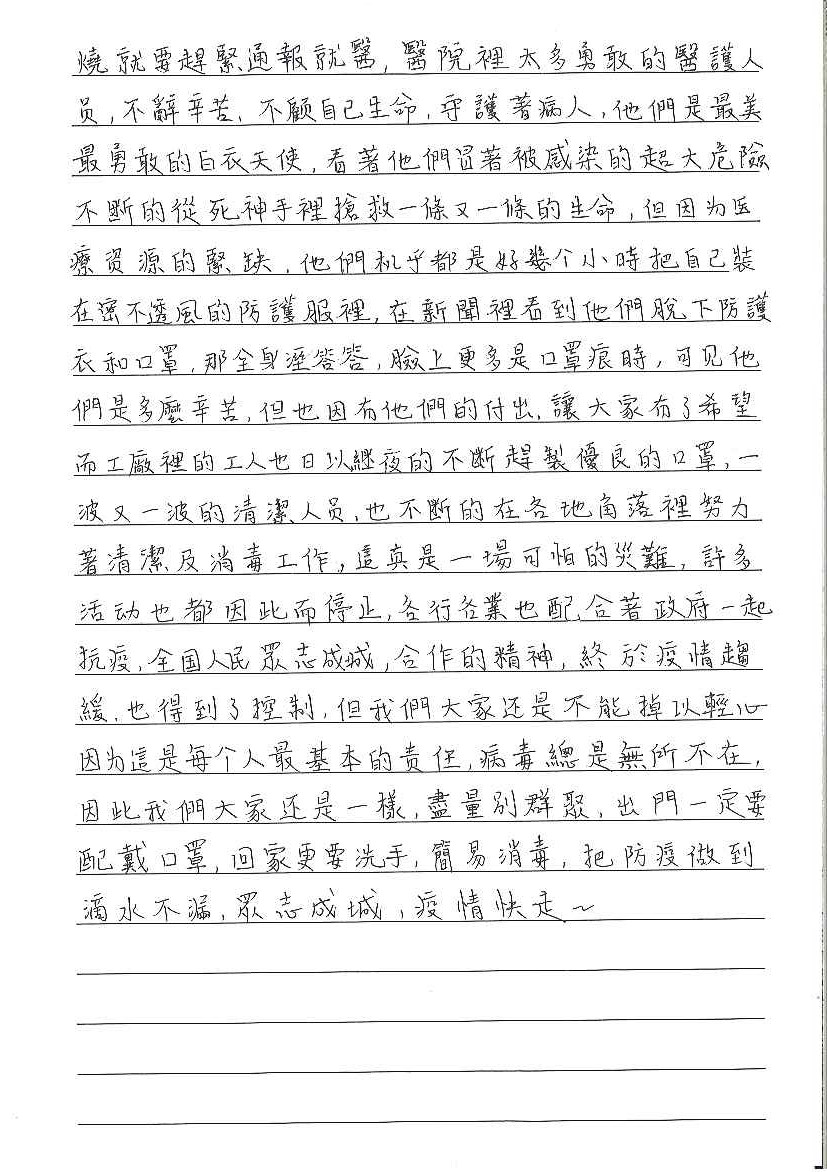 燒就要趕緊通報就醫,醫院裡太多勇敢的醫護人
员,不辭辛苦,不顧自己生命,守護著病人,他們是最美
最勇敢的白衣天使,看著他們冒著被感染的超大危險
不断的從死神手裡搶救一條又一條的生命,但因为医
療资源的緊缺,他們机乎都是好幾个小時把自己裝
在密不透風的防護服裡,在新聞裡看到他們脫下防護
衣和口罩,那全身溼答答,臉上更多是口罩痕時,可见他
們是多麼辛苦,但也因有他們的付出,讓大家有了希望
而工廠裡的工人也日以継夜的不断趕製優良的口罩,一
波又一波的清潔人员,也不断的在各地角落裡努力
著清潔及消毒工作,這真是一場可怕的災難,許多
活动也都因此而停止,各行各業也配合著政府一起
抗疫,全国人民眾志成城,合作的精神,終於疫情趨
緩,也得到了控制,但我們大家还是不能掉以輕心
因为這是每个人最基本的责任,病毒總是無所不在,
因此我們大家还是一樣,盡量別群聚,出門一定要
配戴口罩,回家更要洗手,簡易消毒,把防疫做到
滴水不漏,眾志成城,疫情快走~